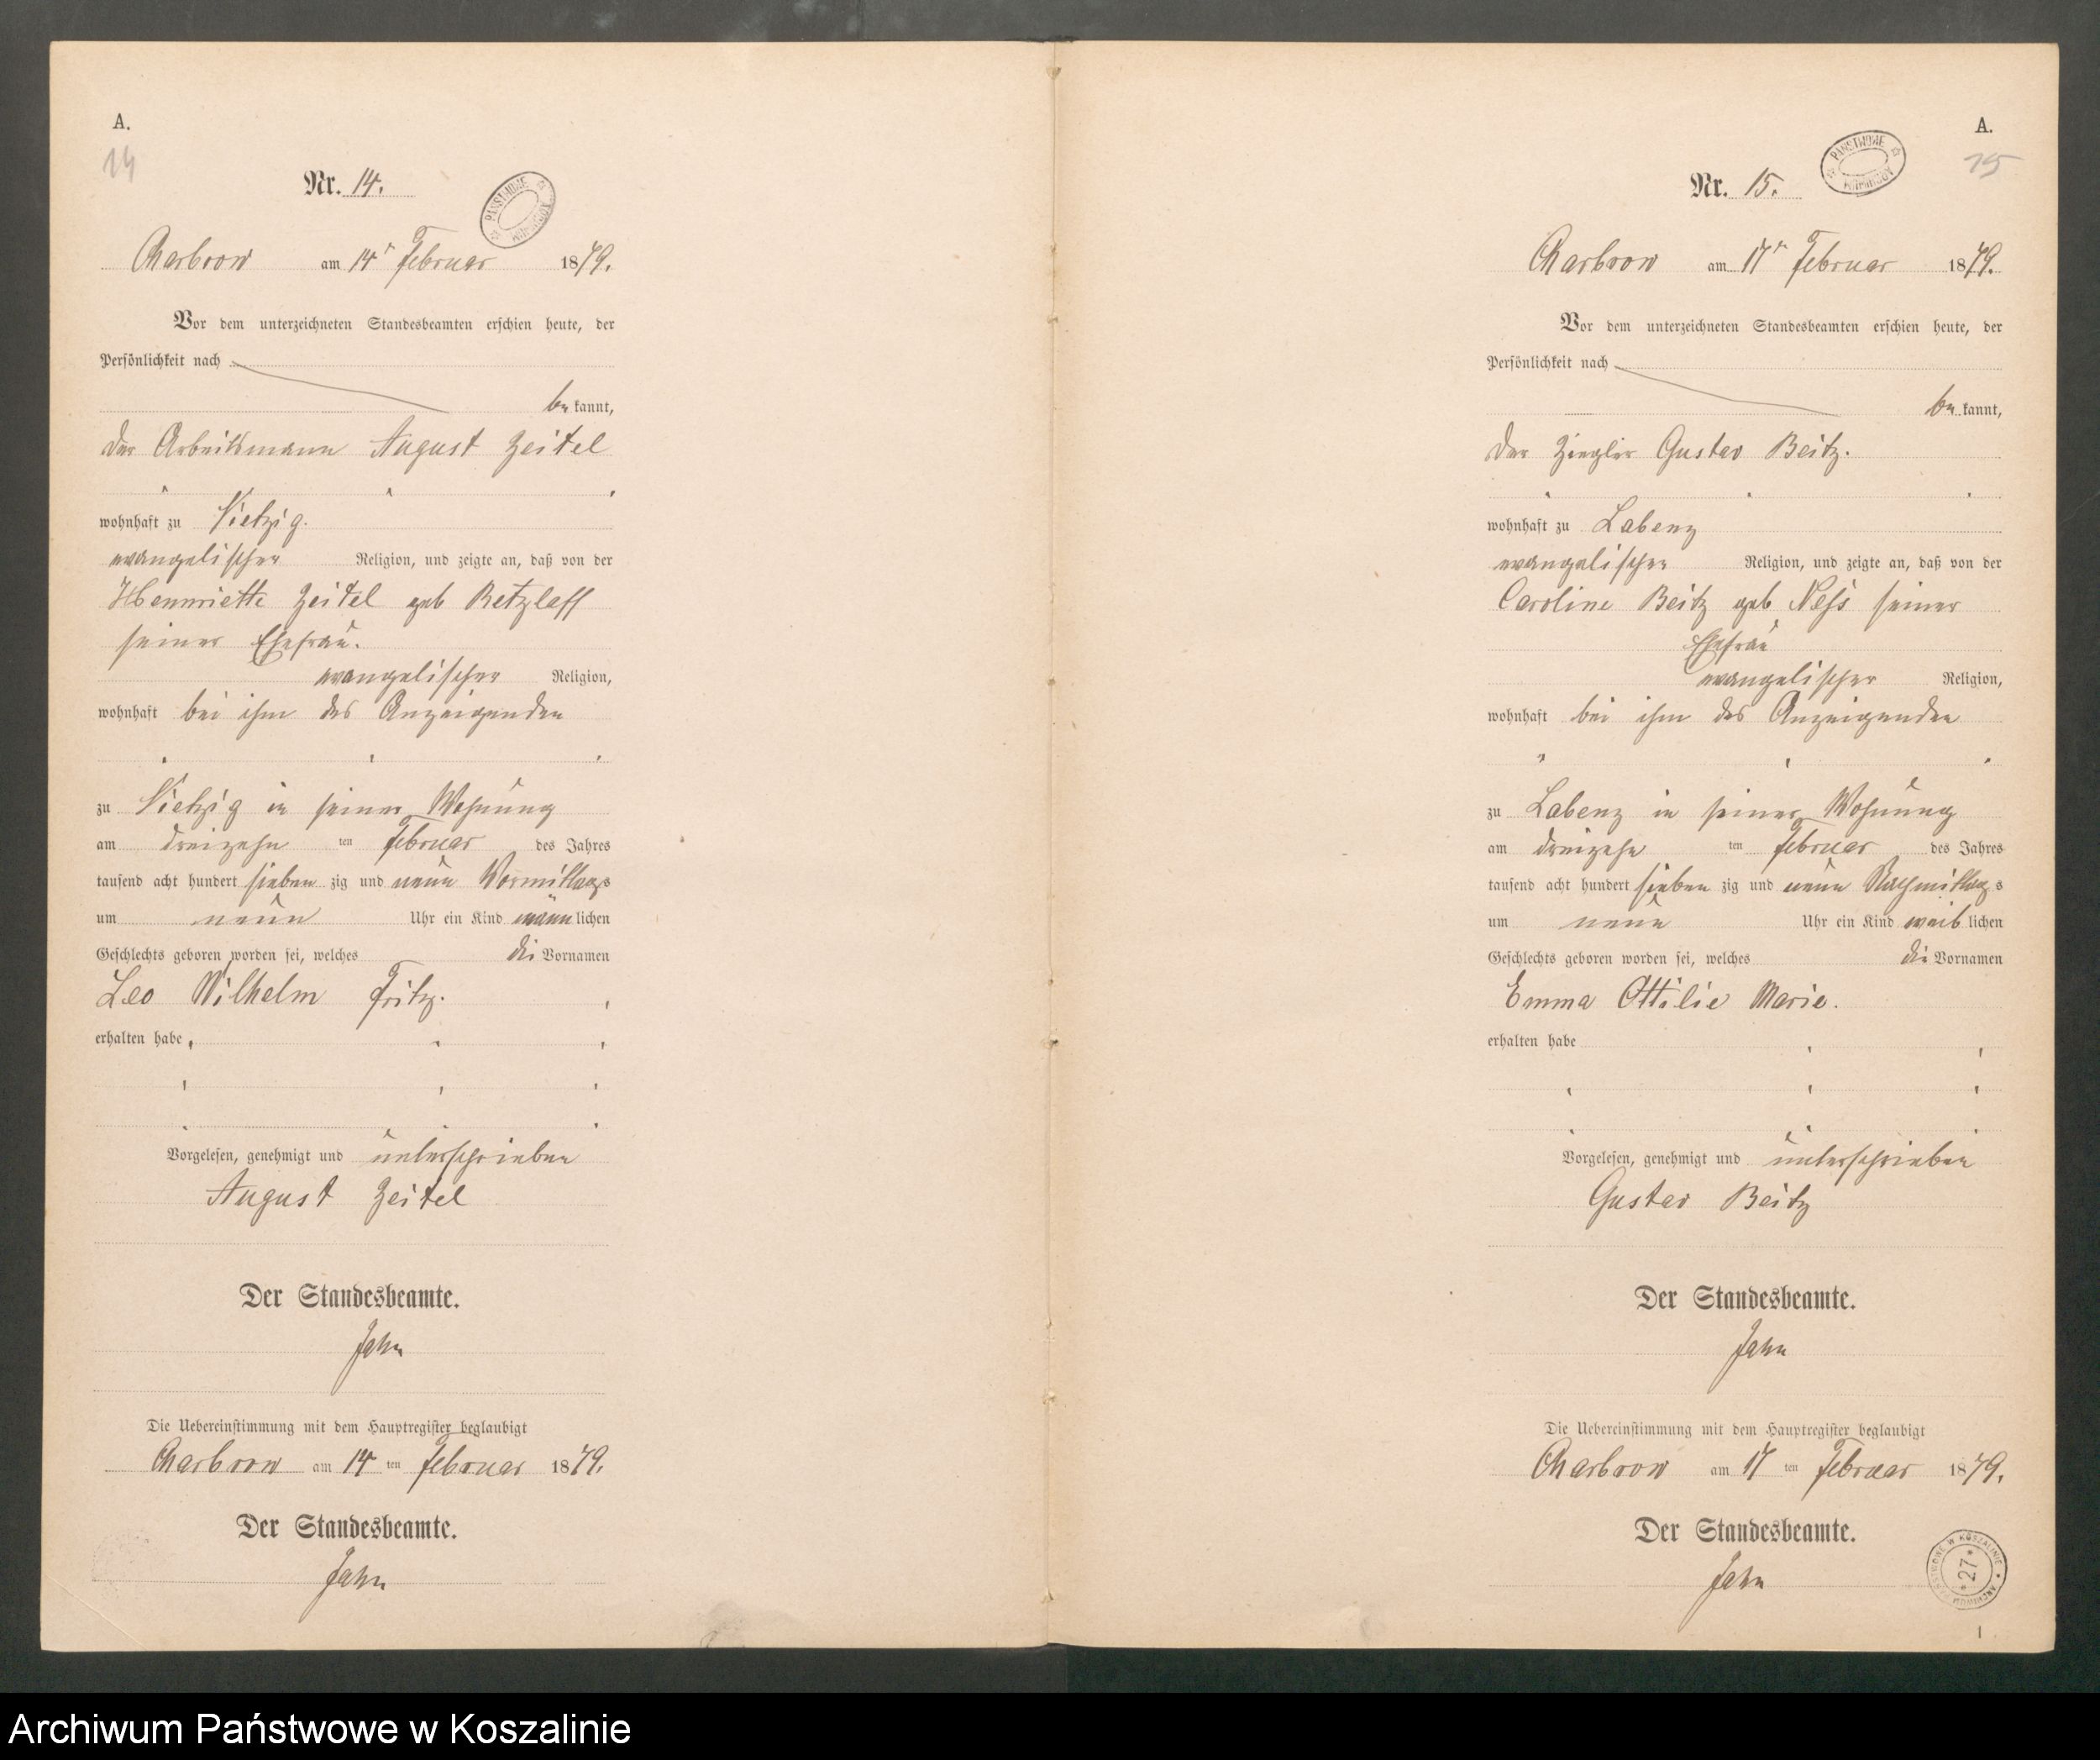 A.
14
Nr. 14.
PAŃSTWOWE ARCHIWUM
Charbrow am 14n Februar 1879.
Vor dem unterzeichneten Standesbeamten erschien heute, der
Persönlichkeit nach
bekannt,
der Arbeitsmann August Zeitel
wohnhaft zu Vietzig.
evangelischer Religion, und zeigte an, daß von der
Hennriette Zeitel geb Retzlaff
seiner Ehefrau.
evangelischer Religion,
wohnhaft bei ihm des Anzeigenden
zu Vietzig in seiner Wohnung
am dreizehn ten Februar des Jahres
tausend acht hundert sieben zig und neun Vormittags
um neun Uhr ein Kind männlichen
Geschlechts geboren worden sei, welches die Vornamen
Leo Wilhelm Fritz.
erhalten habe
Vorgelesen, genehmigt und unterschrieben
August Zeitel
Der Standesbeamte.
Jahn
Die Uebereinstimmung mit dem Hauptregister beglaubigt
Charbrow am 14 ten Februar 1879.
Der Standesbeamte.
Jahn
A.
15
Nr. 15.
PAŃSTWOWE ARCHIWUM
Charbrow am 17n Februar 1879.
Vor dem unterzeichneten Standesbeamten erschien heute, der
Persönlichkeit nach
bekannt,
der Ziegler Gustav Beitz.
wohnhaft zu Labenz
evangelischer Religion, und zeigte an, daß von der
Caroline Beitz geb Neß seiner
Ehefrau
evangelischer Religion,
wohnhaft bei ihm des Anzeigenden
zu Labenz in seiner Wohnung
am dreizehn ten Februar des Jahres
tausend acht hundert sieben zig und neun Nachmittags
um neun Uhr ein Kind weiblichen
Geschlechts geboren worden sei, welches die Vornamen
Emma Ottilie Marie.
erhalten habe
Vorgelesen, genehmigt und unterschrieben
Gustav Beitz
Der Standesbeamte.
Jahn
Die Uebereinstimmung mit dem Hauptregister beglaubigt
Charbrow am 17 ten Februar 1879.
Der Standesbeamte.
Jahn
ARCHIWUM PAŃSTWOWE W KOSZALINIE
* 27 *
1
Archiwum Państwowe w Koszalinie